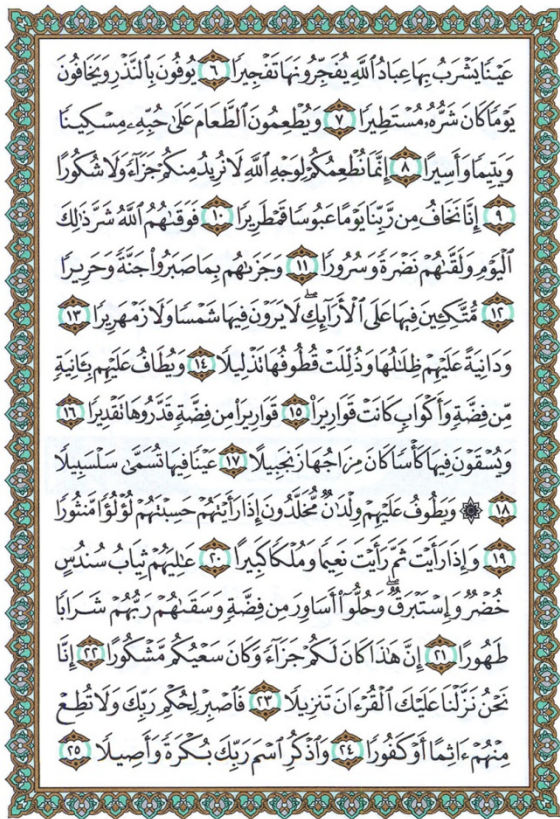 عَيْنًا يَشْرَبُ بِهَا عِبَادُ ٱللَّهِ يُفَجِّرُونَهَا تَفْجِيرًا ٦ يُوفُونَ بِٱلنَّذْرِ وَيَخَافُونَ
يَوْمًا كَانَ شَرُّهُۥ مُسْتَطِيرًا ٧ وَيُطْعِمُونَ ٱلطَّعَامَ عَلَىٰ حُبِّهِۦ مِسْكِينًا
وَيَتِيمًا وَأَسِيرًا ٨ إِنَّمَا نُطْعِمُكُمْ لِوَجْهِ ٱللَّهِ لَا نُرِيدُ مِنكُمْ جَزَآءً وَلَا شُكُورًا
٩ إِنَّا نَخَافُ مِن رَّبِّنَا يَوْمًا عَبُوسًا قَمْطَرِيرًا ١٠ فَوَقَىٰهُمُ ٱللَّهُ شَرَّ ذَٰلِكَ
ٱلْيَوْمِ وَلَقَّىٰهُمْ نَضْرَةً وَسُرُورًا ١١ وَجَزَىٰهُم بِمَا صَبَرُوا۟ جَنَّةً وَحَرِيرًا
١٢ مُّتَّكِـِٔينَ فِيهَا عَلَى ٱلْأَرَآئِكِ ۖ لَا يَرَوْنَ فِيهَا شَمْسًا وَلَا زَمْهَرِيرًا ١٣
وَدَانِيَةً عَلَيْهِمْ ظِلَٰلُهَا وَذُلِّلَتْ قُطُوفُهَا تَذْلِيلًا ١٤ وَيُطَافُ عَلَيْهِم بِـَٔانِيَةٍ
مِّن فِضَّةٍ وَأَكْوَابٍ كَانَتْ قَوَارِيرَا۠ ١٥ قَوَارِيرَا۟ مِن فِضَّةٍ قَدَّرُوهَا تَقْدِيرًا ١٦
وَيُسْقَوْنَ فِيهَا كَأْسًا كَانَ مِزَاجُهَا زَنجَبِيلًا ١٧ عَيْنًا فِيهَا تُسَمَّىٰ سَلْسَبِيلًا
١٨ ۞ وَيَطُوفُ عَلَيْهِمْ وِلْدَٰنٌ مُّخَلَّدُونَ إِذَا رَأَيْتَهُمْ حَسِبْتَهُمْ لُؤْلُؤًا مَّنثُورًا
١٩ وَإِذَا رَأَيْتَ ثَمَّ رَأَيْتَ نَعِيمًا وَمُلْكًا كَبِيرًا ٢٠ عَٰلِيَهُمْ ثِيَابُ سُندُسٍ
خُضْرٌ وَإِسْتَبْرَقٌ ۖ وَحُلُّوٓا۟ أَسَاوِرَ مِن فِضَّةٍ وَسَقَىٰهُمْ رَبُّهُمْ شَرَابًا
طَهُورًا ٢١ إِنَّ هَٰذَا كَانَ لَكُمْ جَزَآءً وَكَانَ سَعْيُكُم مَّشْكُورًا ٢٢ إِنَّا
نَحْنُ نَزَّلْنَا عَلَيْكَ ٱلْقُرْءَانَ تَنزِيلًا ٢٣ فَٱصْبِرْ لِحُكْمِ رَبِّكَ وَلَا تُطِعْ
مِنْهُمْ ءَاثِمًا أَوْ كَفُورًا ٢٤ وَٱذْكُرِ ٱسْمَ رَبِّكَ بُكْرَةً وَأَصِيلًا ٢٥